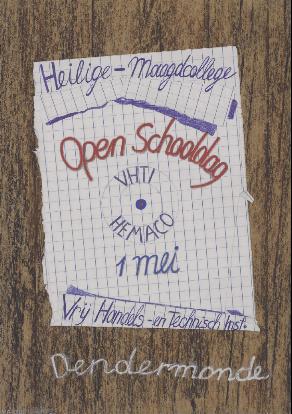 Heilige-Maagdcollege
Open Schooldag
VHTI
HEMACO
1 mei
Vrij Handels-en Technisch Inst.
Dendermonde